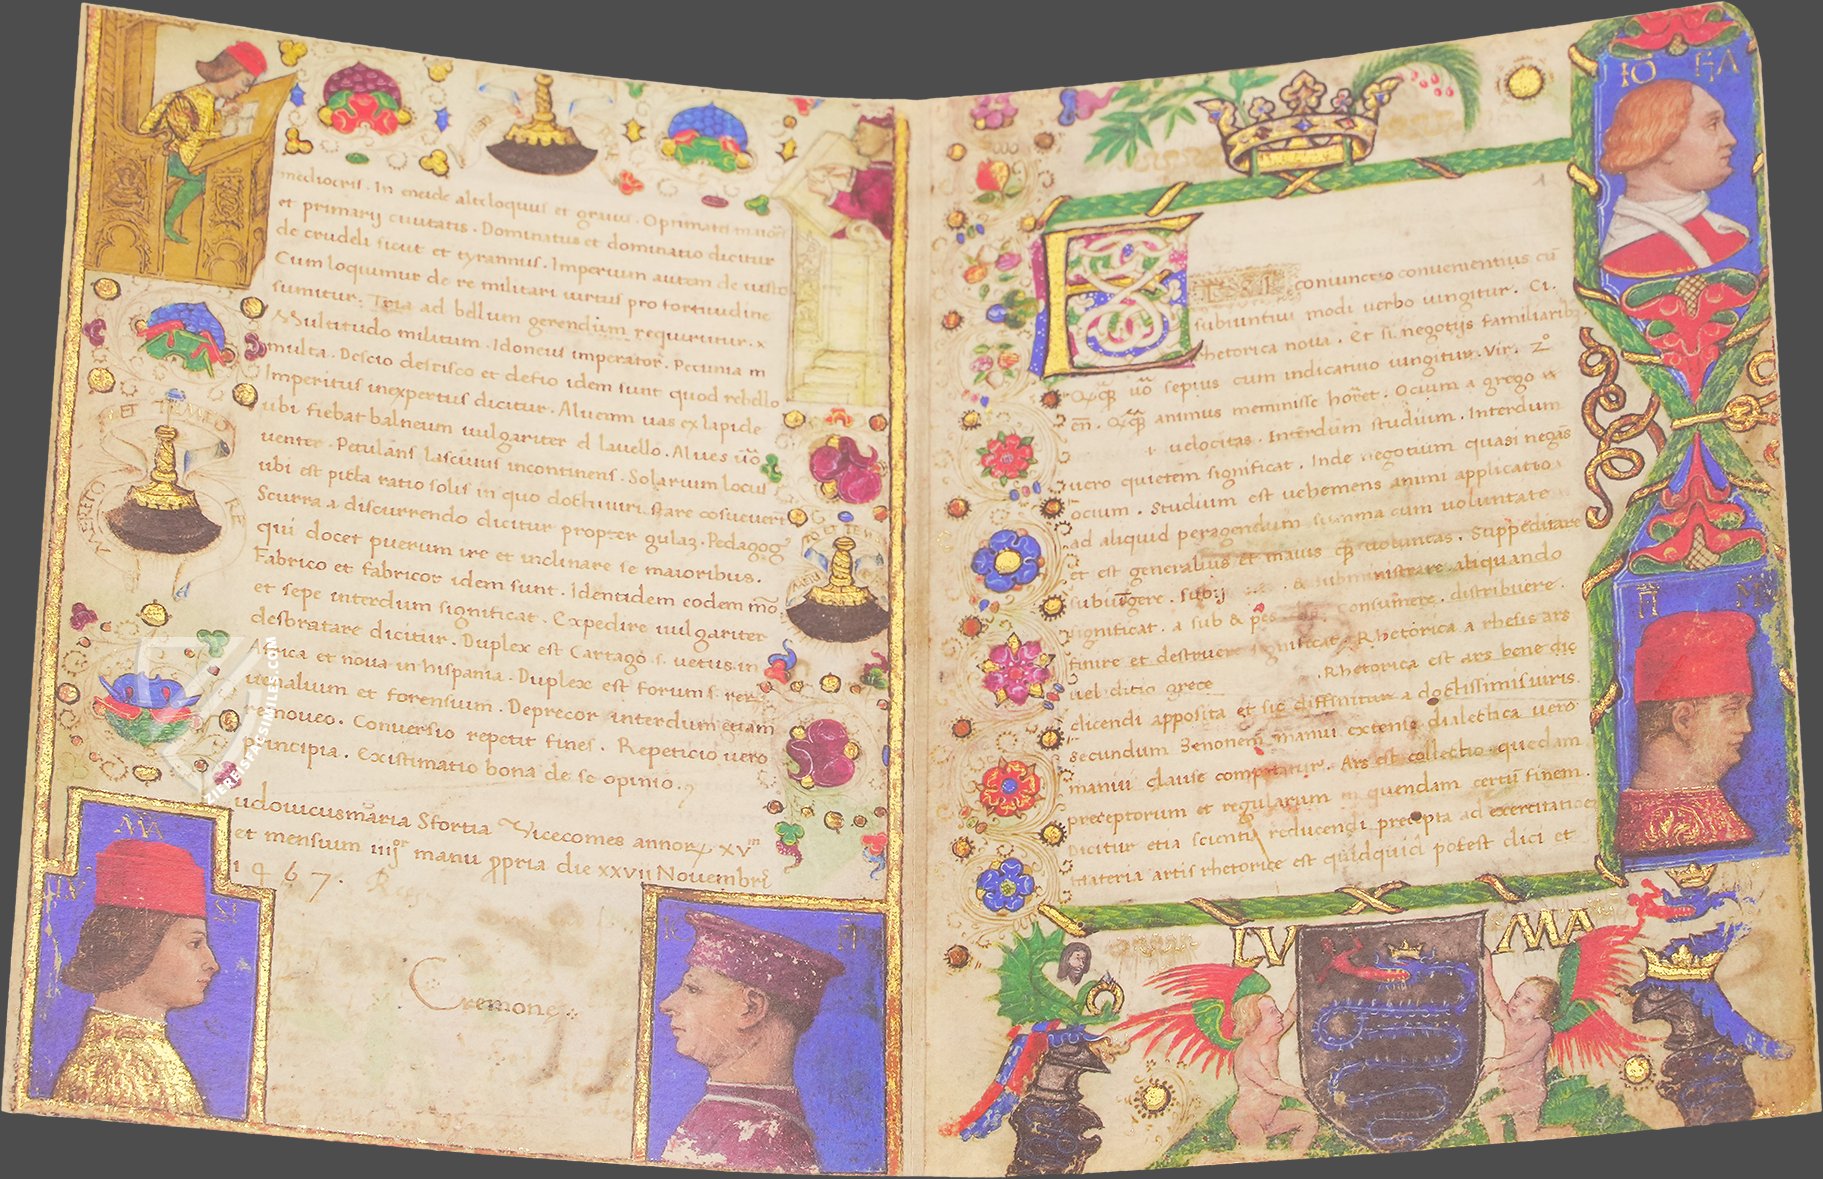 mediocris. In eneide altiloquus et gravis. Optimates maior
et primarij ciuitatis. Dominatus et dominatio dicitur
de crudeli sicut et tyrannus. Imperium autem de iusto
Cum loquimur de re militari uirtus pro fortitudine
sumitur. Tria ad bellum gerendum requiruntur.
Multitudo militum. Idoneus imperator. Pecunia m
multa. Descio descisco et deficio idem sunt quod rebello
Imperitus inexpertus dicitur. Alueum uas ex lapide
ubi fiebat balneum uulgariter el lauello. Alues uō
uenter. Petulans lasciuus incontinens. Solarium locus
ubi est picta ratio solis in quo docti uiri stare cōsueuert
Scurra a discurrendo dicitur propter gulaʒ. Pedagog
qui docet puerum ire et inclinare se maioribus.
Fabrico et fabricor idem sunt. Identidem eodem mō.
et sepe interdum significat. Expedire uulgariter
desbratare dicitur. Duplex est Cartago s. uetus in
Africa et noua in hispania. Duplex est forum s. rer
uenalium et forensium. Deprecor interdum etiam
remoueo. Conuersio repetit fines. Repeticio uero
principia. Existimatio bona de se opinio.
udouicusmāria Sfortia Vicecomes annorꝝ xvᵐ
et mensium iiijᵒʳ manu ꝓpria die xxvii Nouembrꝭ
1467.
Cremone
ET TIMEO
MERITO
RE
ZIEREISFACSIMILES.COM
MA
SF
IO
IO
HA
1
coniunctio conuenientius cū
subiuntiui modi uerbo iungitur. Ci.
rhetorica noua. Et si negotijs familiarib
uō sepius cum indicatiuo iungitur. Vir. 2º
en. animus meminisse horret. Ocium a grego
i. uelocitas. Interdum studium. Interdum
uero quietem significat. Inde negotium quasi negās
ocium. Studium est uehemens animi applicatio
ad aliquid peragendum summa cum uoluntate
et est generalius et maius uoluntas. Suppeditare
subiūgere. & subministrare. aliquando
significat. a sub & pes Consumere. distribuere.
finire et destruere significat. Rhetorica a rhesis ars
uel ditio grece Rhetorica est ars bene dic
dicendi apposita et sic diffinitur a doctissimis uiris.
secundum Zenonem manui extense dialectica uero
manui clause comparatur. Ars est collectio quedam
preceptorum et regularum in quendam certū finem.
Dicitur etiā scientia reducendi precepta ad exercitatioē
materia artis rhetorice est quidquid potest dici et
LV
MA